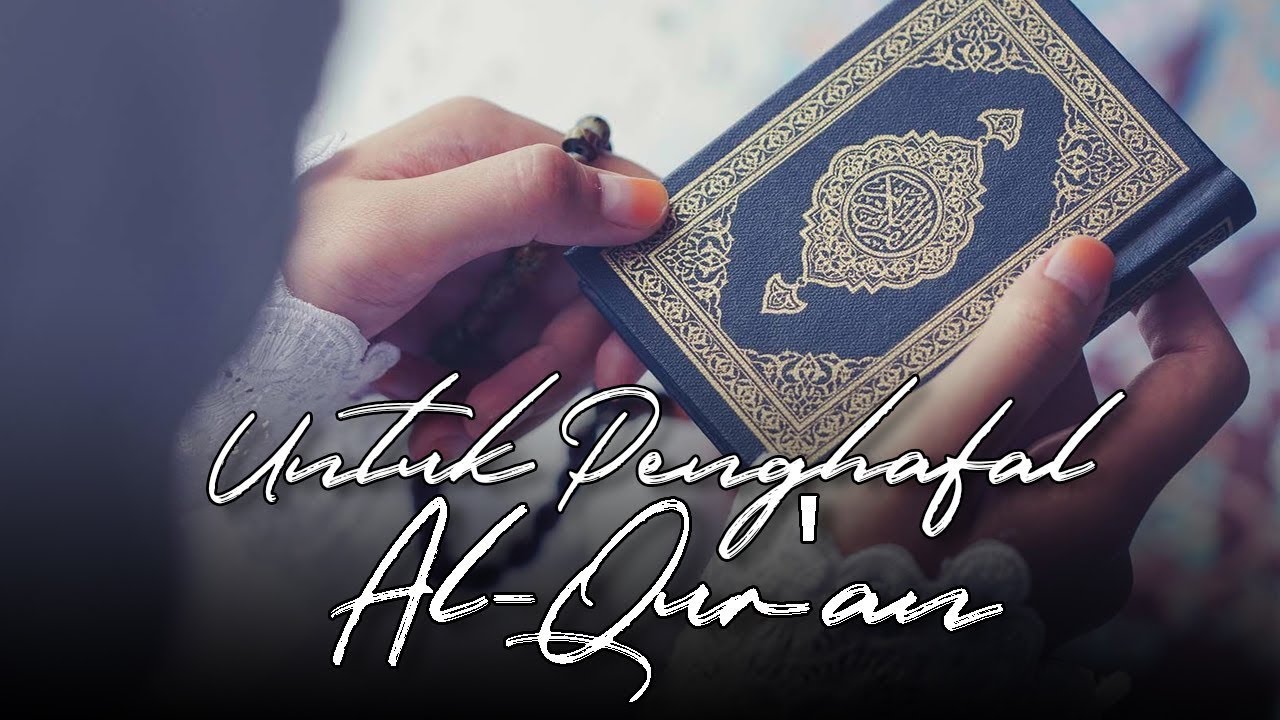 Untuk Penghafal
Al-Qur'an